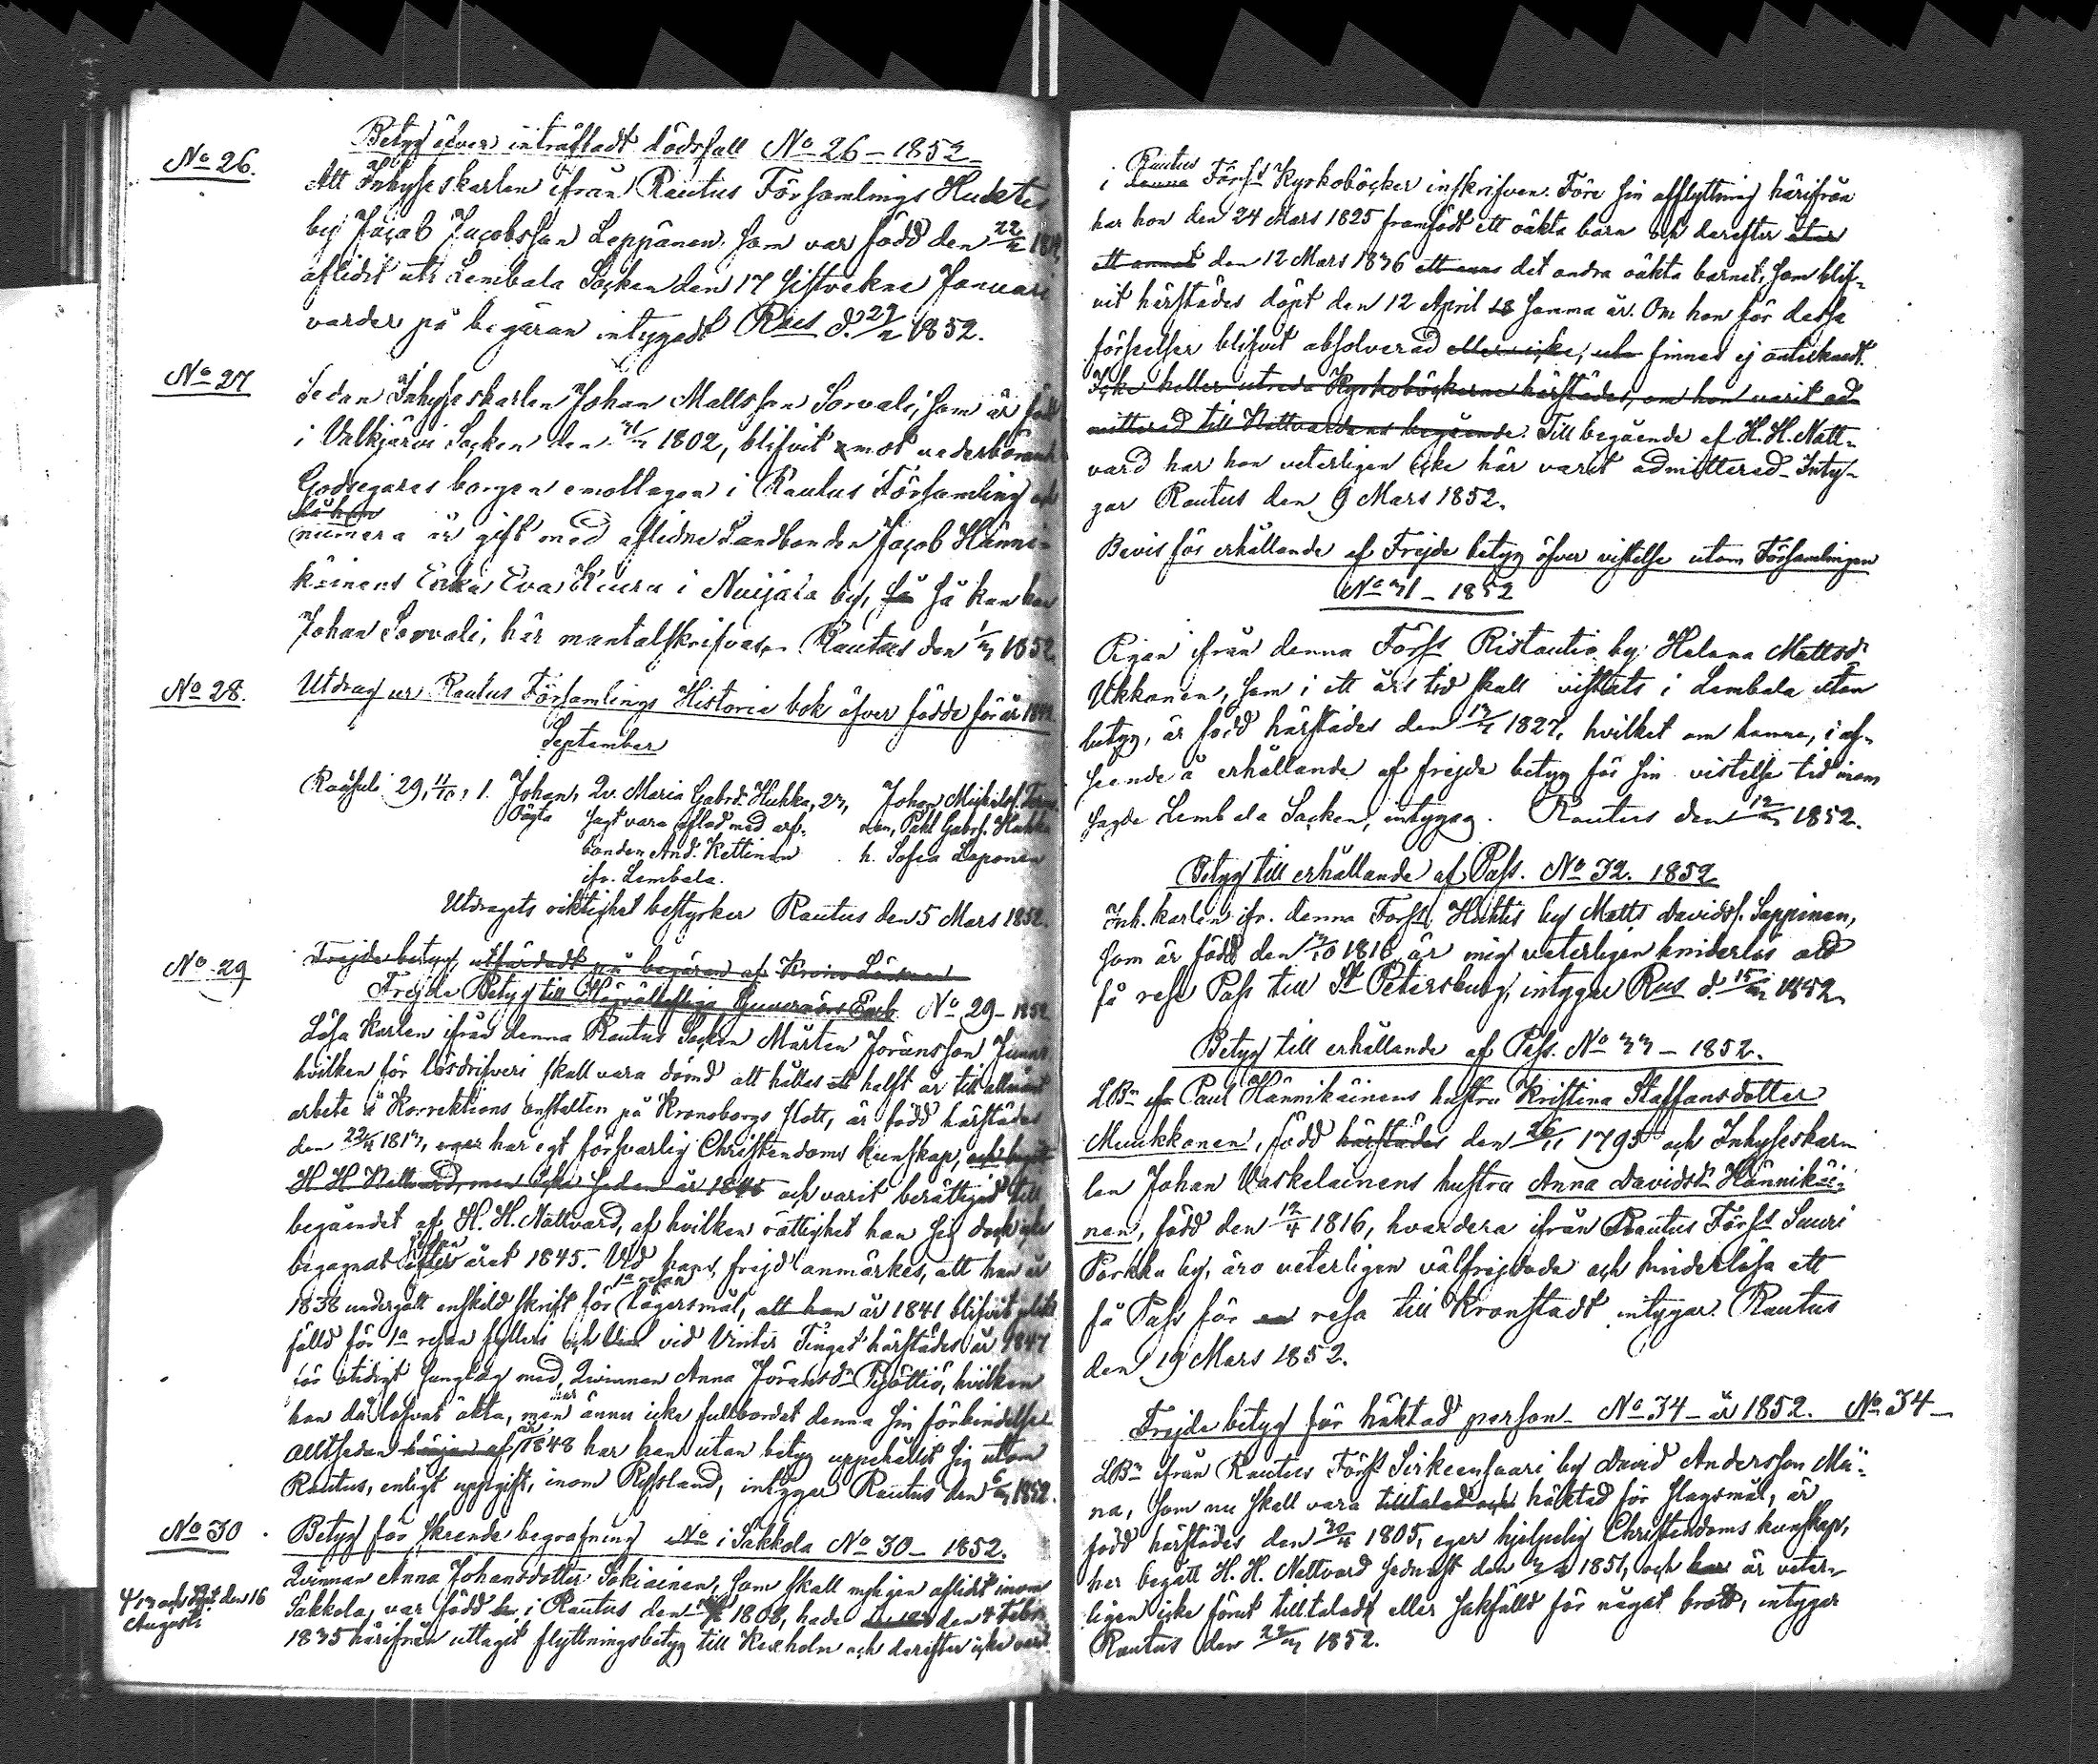 Betyg öfver inträffadt dödsfall No 26 – 1852
No 26.
Att Inhyseskarlen ifrån Rautus Församlings Huhtis
by Jacob Jacobsson Leppänen, som var född den 22/2
aflidit uti Lembala Socken den 17 sistvekne Januari
varder på begäran intygadt Raus d. 29/2 1852.
No 27
Sedan Inhyseskarlen Johan Mattsson Sorvali, som är född
i Valkjärvi Socken den 31/ 1802, blifvit emot vederbörande
Godsegares borgen emottagen i Rautus Församling och
då han
numera är gift med aflidne Landbonden Jacob Hänni-
käinens Enka Eva Kiuru i Nuijala by, så så kan han
Johan Sorvali, här mantalskrifvas. Rautus den 1/3 1852.
No 28.
Utdrag ur Rautus Församlings Historie bok öfver födde för år
September
Raasuli 29, 4/10, 1. Johan, Qv. Maria Gabrd. Hukka, 23, Johan Michelss.
Oägta sagt vara aflad med arf- Pehl Gabrs. Hukka
bonden And. Kettinen h. Sofia Loponen
ifr. Lembala.
Utdragets riktighet bestyrker Rautus den 5 Mars 1852.
No 29
Frejde betyg, utfärdadt på begäran af Krono Länsman
Frejde Betyg till Högvälloflige Guvernörs Emb. No 29 – 1852
Lösa Karlen ifrån denna Rautus Socken Mårten Jöransson
hvilken för lösdrifveri skall vara dömd att hållas ett halft år till allmänt
arbete å Korrektions anstalten på Kronoborgs slott, är född härstädes
den 22/4 1813, eger har egt försvarlig Christendoms kunskap, och begått
H H Nattvard, men icke sedan år 1845 och varit berättigad till
begåendet af H. H. Nattvard, af hvilken rättighet han sig dock icke
begagnat efter sedan året 1845. Vid hans frejd anmärkes, att han år
1838 undergått enskild skrift för 1a resan lägersmål, att han år 1841 blifvit
fälld för 1a resan fylleri och vid Vinter Tinget härstädes år 1847
för otidigt sänglag med Qvinnan Anna Jöransdr Pyöttiö, hvilken
han då lofvat äkta, men har ännu icke fullbordat denna sin förbindelse
Alltsedan början af år 1848 har han utan betyg uppehållit sig utom
Rautus, enligt uppgift, inom Ryssland, intygar Rautus den 6/3 1852.
No 30
Betyg för skeende begrafning No i Sakkola No 30 – 1852.
Qvinnan Anna Johansdotter Sokiainen, som skall nyligen aflidit inom
4/13 och döpt den 16
Augusti
Sakkola, var född i Rautus den 1808, hade den 4 Febr.
1835 härifrån uttagit flyttningsbetyg till Kexholm och derefter icke varit
Rautus
i denna Förs:s Kyrkoböcker inskrifven. Före sin afflyttning härifrån
har hon den 24 Mars 1825 framfödt ett oäkta barn och derefter
ett annat den 12 Mars 1836 det andra oäkta barnet, som blif-
vit härstädes döpt den 12 April 18 samma år. Om hon för dessa
förseelser blifvit absolverad eller icke, finnes ej antecknadt.
Icke heller utreda Kyrkoböckerne härstädes, om hon varit ad
mitterad till Nattvardens begående. Till begående af H. H. Natt-
vard har hon veterligen icke här varit admitterad. Inty-
gar Rautus den 9 Mars 1852.
Bevis för erhållande af Frejde betyg öfver vistelse utom Församlingen
No 31 – 1852
Pigan ifrån denna Förs:s Ristautio by Helena Mattsdr
Ukkonen, som i ett års tid skall vistats i Lembala utan
betyg, är född härstädes den 13/ 1827, hvilket om henne, i af-
seende å erhållande af frejde betyg för sin vistelse tid inom
sagde Lembala Socken, intygas. Rautus den 12/3 1852.
Betyg till erhållande af Pass. No 32. 1852
Inh. karlen ifr. denna Förs:s Huhtis by Matts Davidss. Seppinen,
som är född den 3/10 1818 är mig veterligen hinderlös att
få resa Pass till St Petersburg, intygar Rus d. 15/3 1852.
Betyg till erhållande af Pass. No 33 – 1852.
LBn ifr Paul Hännikäinens hustru Kristina Staffansdotter
Muukkonen, född härstädes den 26/ 1795 och Inhyseskar-
len Johan Vaskelainens hustru Anna Davidsdr Hännikäi-
nen, född den 12/4 1816, hvardera ifrån Rautus Förs:s Suuri
Porkku by, äro veterligen välfrejdade och hinderlösa att
få Pass för en resa till Kronstadt intygar. Rautus
den 19 Mars 1852.
Frejde betyg för häktad person – No 34 – år 1852. No 34 –
LBn ifrån Rautus Förs:s Sirkeensaari by David Andersson Mu-
na, som nu skall vara tilltalad och häktad för slagsmål, är
född härstädes den 30/ 1805, eger hjelpelig Christendoms kunskap,
har begått H. H. Nattvard sednast den 1851, och har är veter-
ligen icke förut tilltalad eller sakfälld för något brott, intygar
Rautus den 22/3 1852.